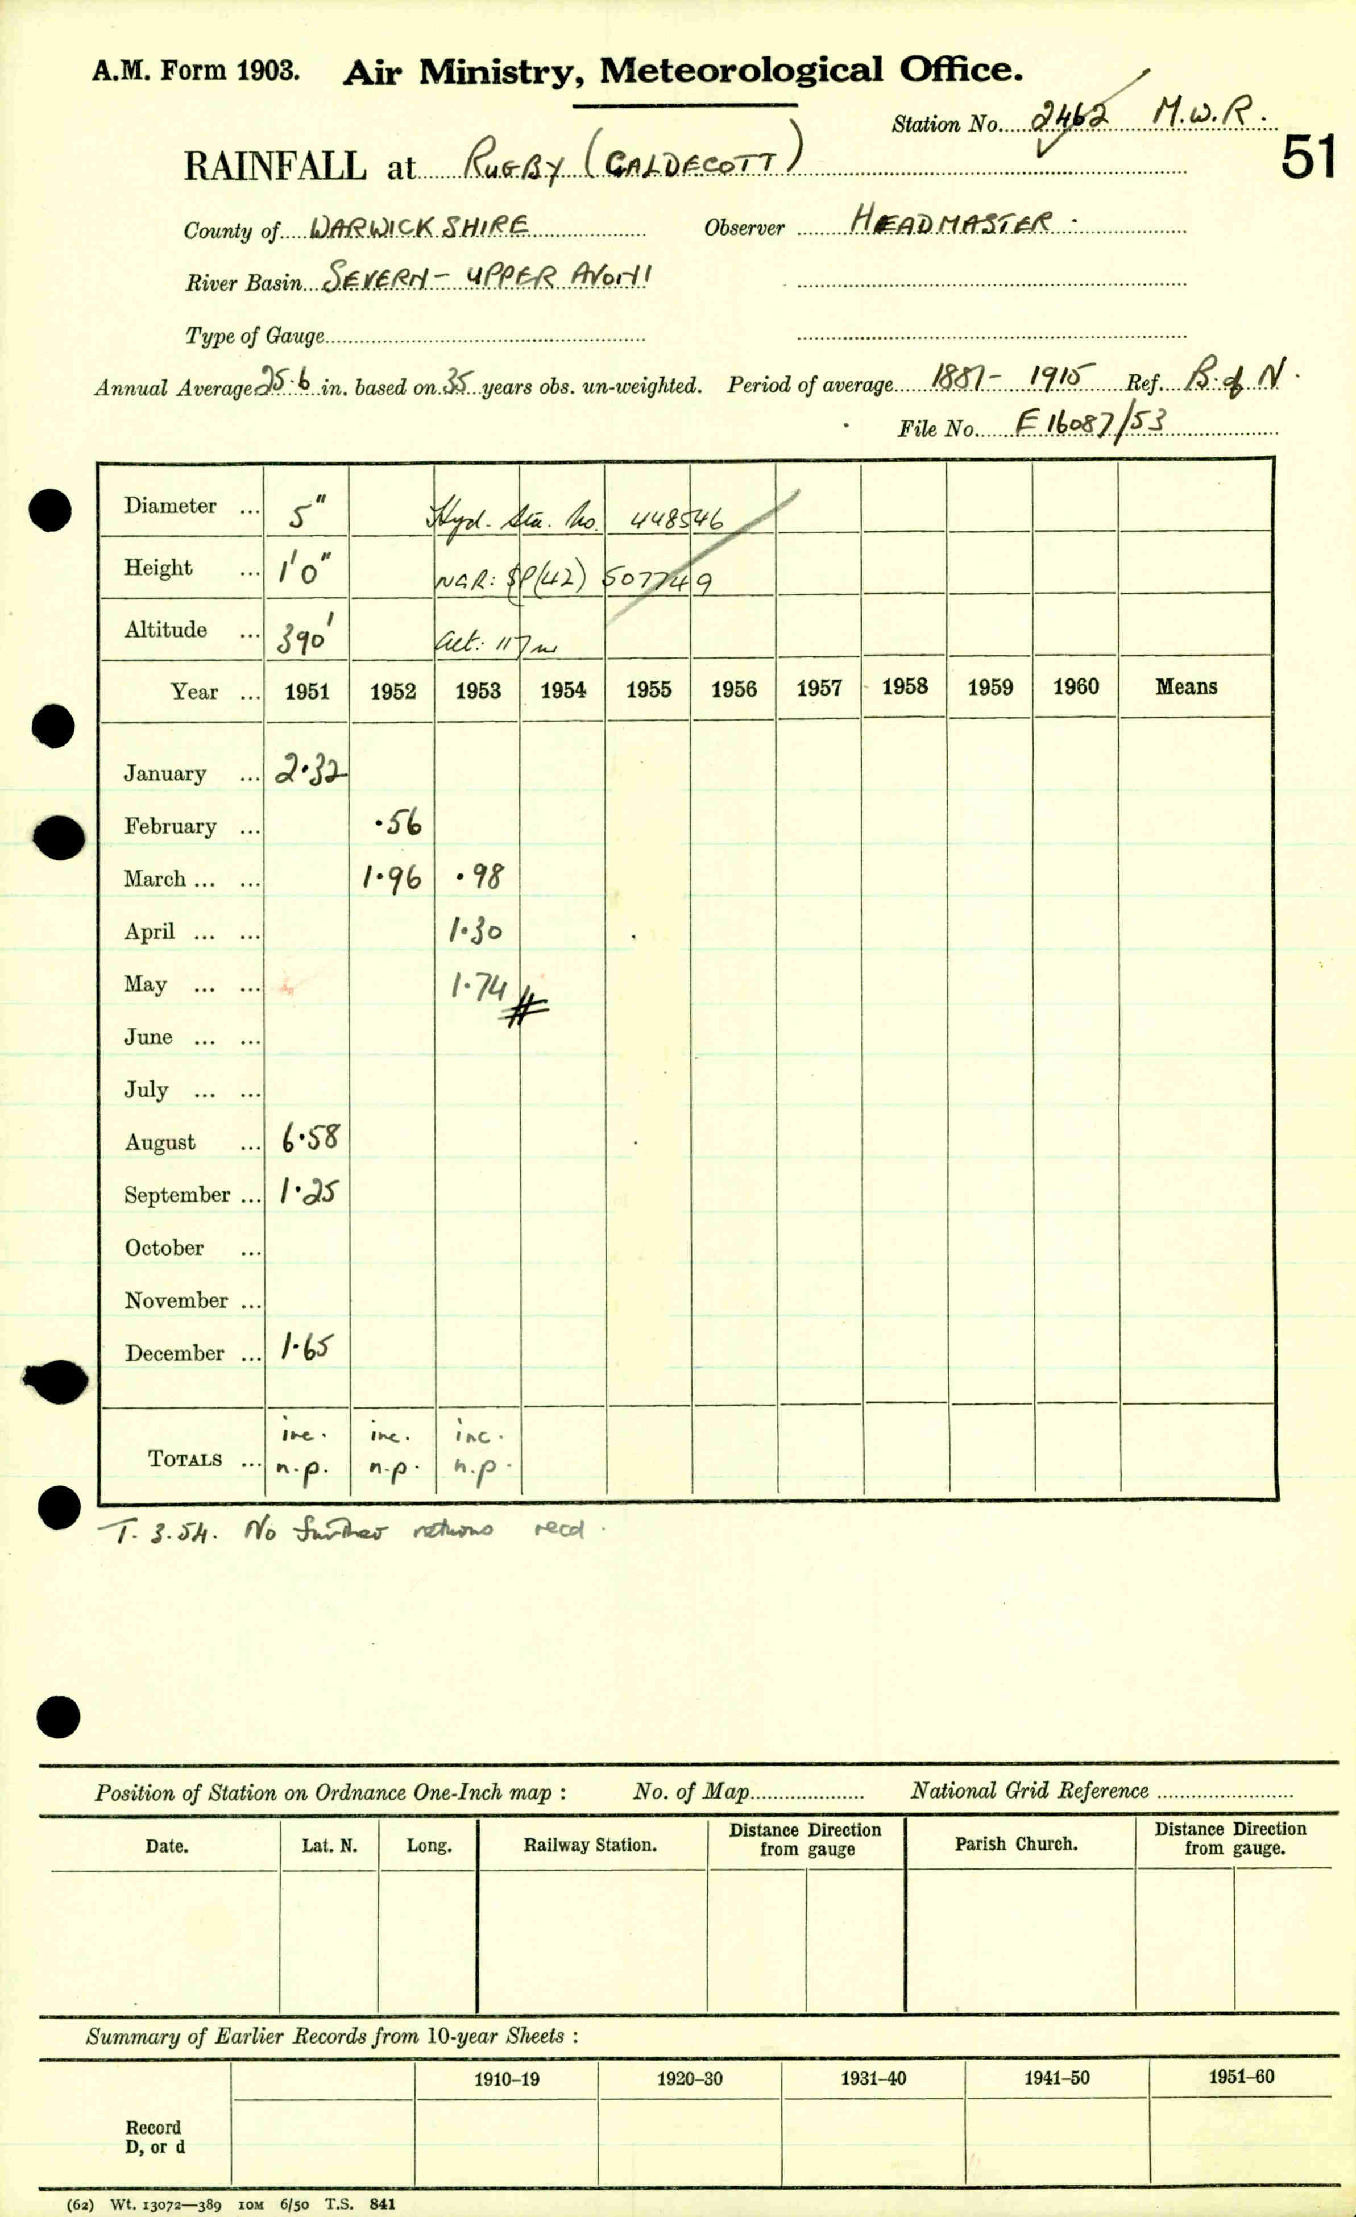 A.M. Form 1903. Air Ministry, Meteorological Office.
Station No. 2462 M.W.R.
51
RAINFALL at RUGBY (CALDECOTT)
County of WARWICKSHIRE Observer HEADMASTER
River Basin SEVERN - UPPER AVON
Type of Gauge
Annual Average 25.6 in. based on 35 years obs. un-weighted. Period of average 1881 - 1915 Ref. B. of N.
File No. E 16087/53
Diameter ... 5" Hyd. Sta. No. 448546
Height ... 1'0" NGR: SP(42) 507749
Altitude ... 390' Alt: 117m
Year ... 1951 1952 1953 1954 1955 1956 1957 1958 1959 1960 Means
January ... 2.32
February ... .56
March ... ... 1.96 .98
April ... ... 1.30
May ... ... 1.74 #
June ... ...
July ... ...
August ... 6.58
September ... 1.25
October ...
November ...
December ... 1.65
inc. inc. inc.
TOTALS ... n.p. n.p. n.p.
T. 3.54. No further returns recd.
Position of Station on Ordnance One-Inch map : No. of Map National Grid Reference
Date. Lat. N. Long. Railway Station. Distance Direction from gauge Parish Church. Distance Direction from gauge.
Summary of Earlier Records from 10-year Sheets :
1910–19 1920–30 1931–40 1941–50 1951–60
Record
D, or d
(62) Wt. 13072—389 10M 6/50 T.S. 841